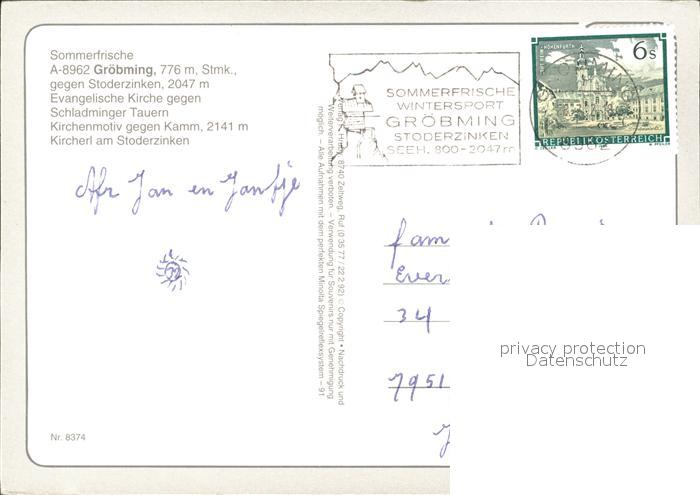 Sommerfrische
A-8962 Gröbming, 776 m, Stmk.,
gegen Stoderzinken, 2047 m
Evangelische Kirche gegen
Schladminger Tauern
Kirchenmotiv gegen Kamm, 2141 m
Kircherl am Stoderzinken
SOMMERFRISCHE
WINTERSPORT
GRÖBMING
STODERZINKEN
SEEH. 800-2047m
6s
REPUBLIK ÖSTERREICH
8740 Zeltweg, Ruf (0 35 77 / 22 2 92) © Copyright • Nachdruck und
Weiterverarbeitung verboten. – Verwendung für Souvenirs nur mit Genehmigung
möglich. – Alle Aufnahmen mit dem perfekten Minolta Spiegelreflexsystem – 91
Afz Jan en Jantje
fam
Ever
34
7951
privacy protection
Datenschutz
Nr. 8374